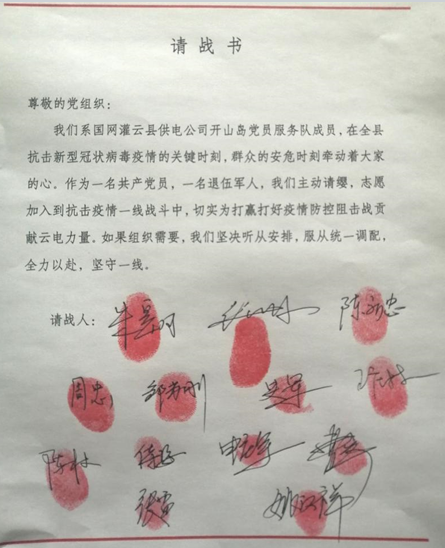 请战书
尊敬的党组织：
我们系国网灌云县供电公司开山岛党员服务队成员，在全县
抗击新型冠状病毒疫情的关键时刻，群众的安危时刻牵动着大家
的心。作为一名共产党员，一名退伍军人，我们主动请缨，志愿
加入到抗击疫情一线战斗中，切实为打赢打好疫情防控阻击战贡
献云电力量。如果组织需要，我们坚决听从安排，服从统一调配，
全力以赴，坚守一线。
请战人：
周忠
吴军
陈林
张寅
姚汉祥